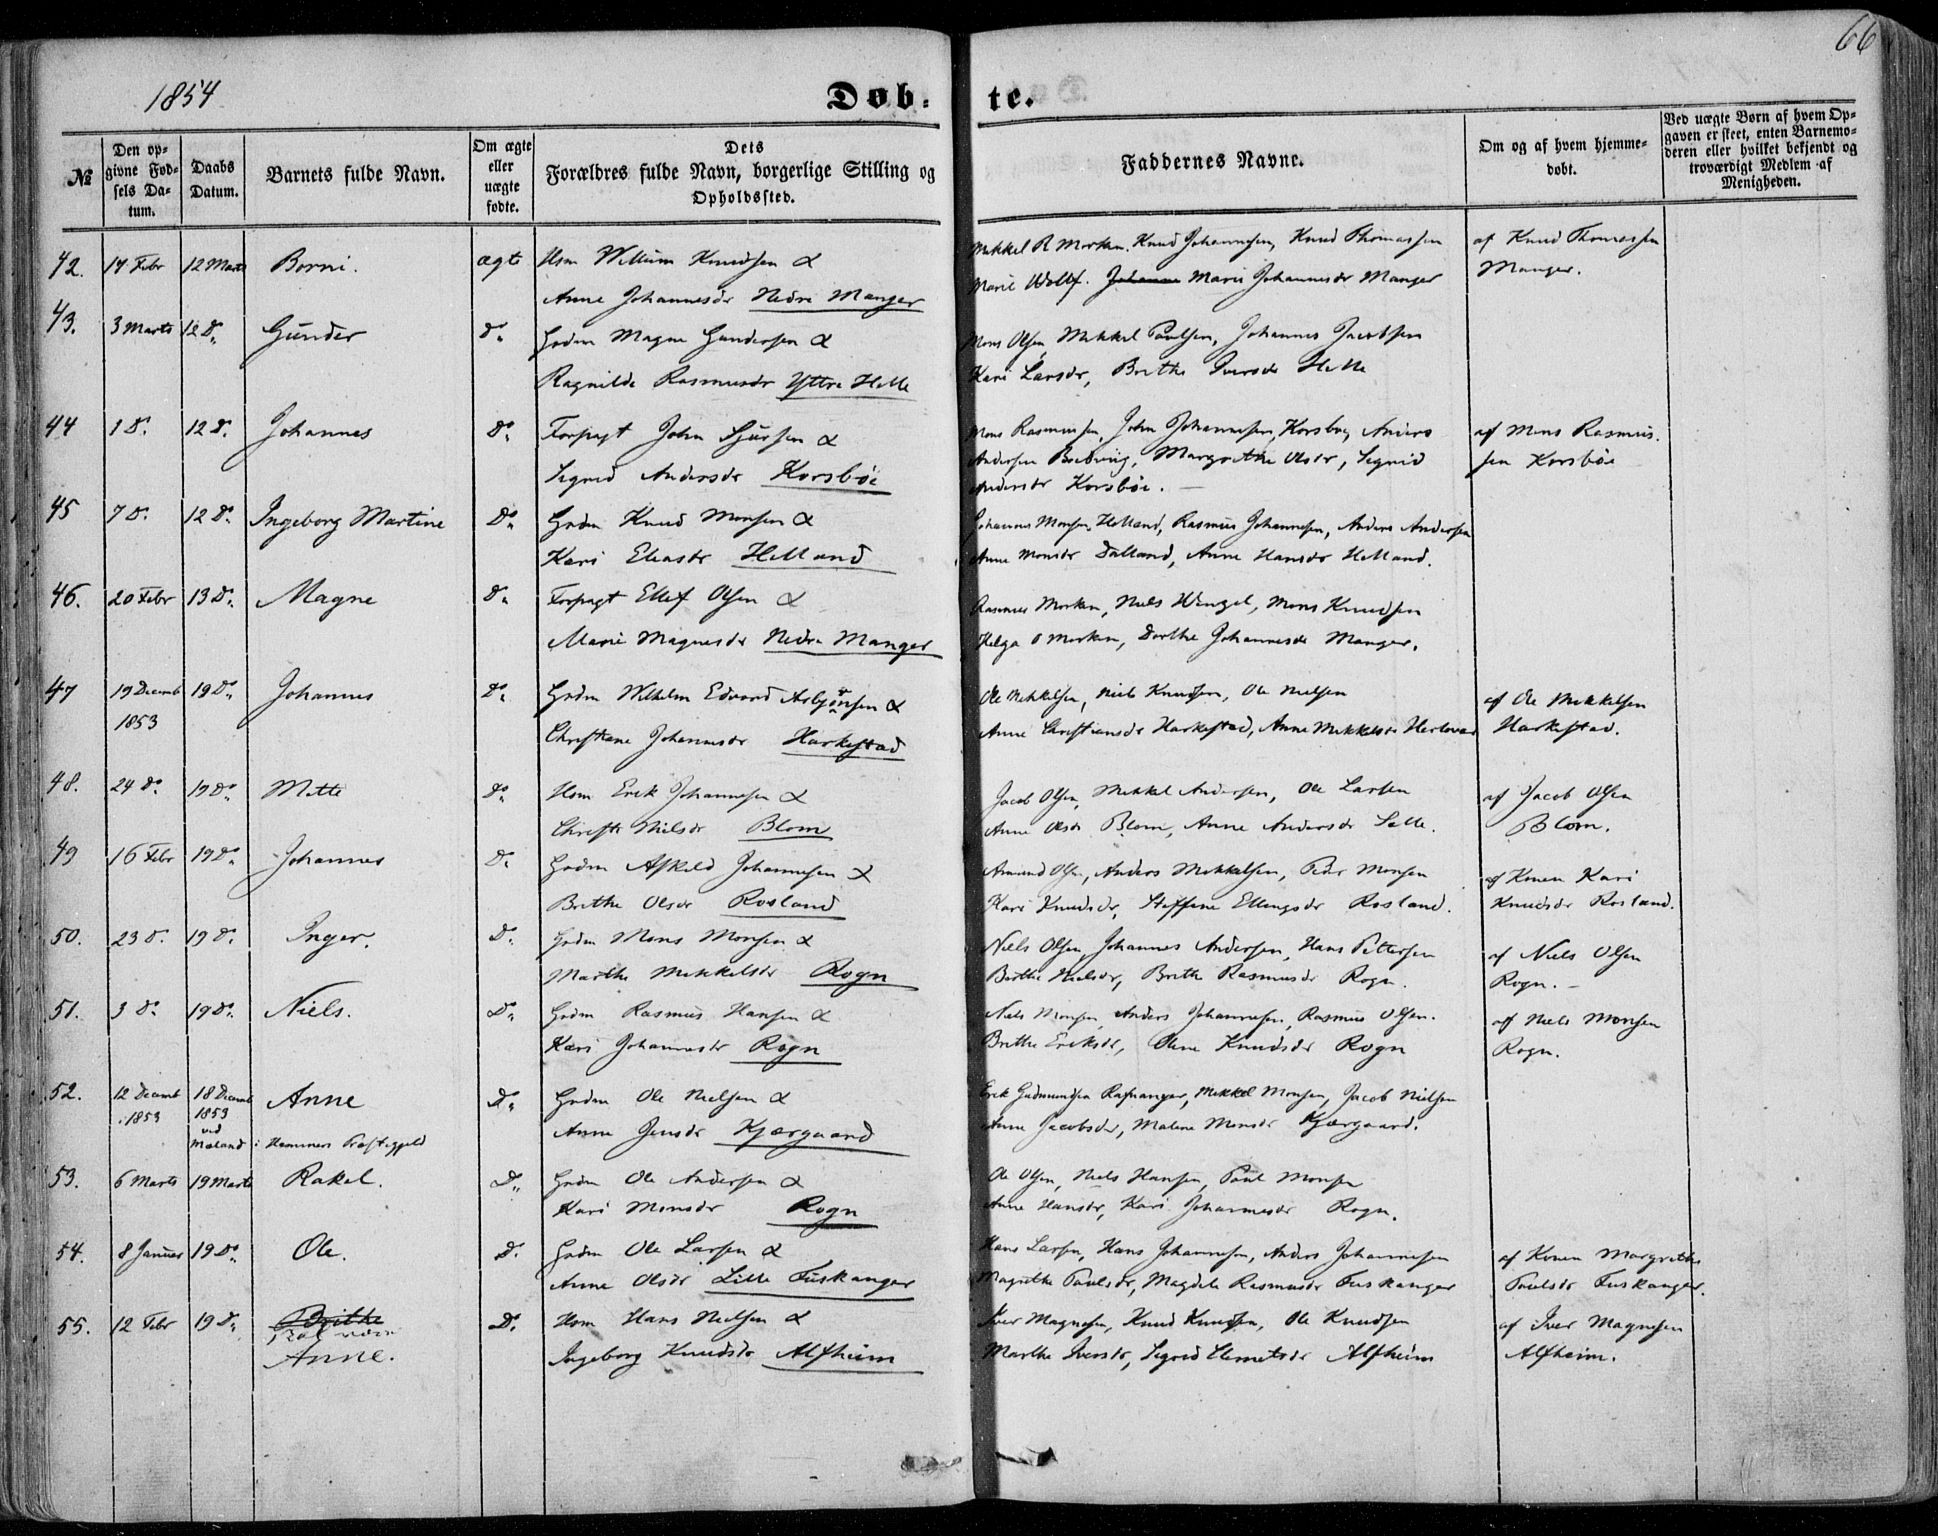 66
1854
Døb-
te.
№
Den op-
givne Fød-
sels Da-
tum.
Daabs
Datum.
Barnets fulde Navn.
Om ægte
eller
uægte
fødte.
Dets
Forældres fulde Navn, borgerlige Stilling og
Opholdssted.
Faddernes Navne.
Om og af hvem hjemme-
døbt.
Ved uægte Børn af hvem Op-
gaven er skeet, enten Barnemo-
deren eller hvilket bekjendt og
troværdigt Medlem af
Menigheden.
42. 14 Febr 12 Marts Borni. ægte Hsm Willum Knudsen &
Anne Johannesdr Nedre Manger
Mikkel R Morken. Knud Johannesen, Knud Thomassen
Marie Wollf. Johanne Marie Johannesdr Manger
af Knud Thomassen
Manger.
43. 3 Marts 12 D. Gunder D. Grdm Magne Gundersen &
Ragnilde Rasmusdr Yttre Helle
Mons Olsen, Mikkel Poulsen, Johannes Jacobsen
Kari Larsdr, Brithe Iversdr Helle
44 1 D. 12 D. Johannes D. Forpagt John Sjursen &
Sigrid Andersdr Korsbøe
Mons Rasmussen, John Johannesen, Korsbøe, Anders
Andersen, Margrethe Olsdr, Sigrid
Andersdr Korsbøe.
af Mons Rasmus-
sen Korsbøe
45 7 D. 12 D. Ingeborg Martine D. Grdm Knud Monsen &
Kari Eliasdr Helland
Johannes Monsen Helland, Rasmus Johannesen, Anders Andersen
Anne Monsdr Dalland, Anne Hansdr Helland.
46. 20 Febr 13 D. Magne D. Forpagt Ellef Olsen &
Marie Magnesdr Nedre Manger
Rasmus Morken, Niels Wengel, Mons Knudsen
Helga O Morken, Dorthe Johannesdr Manger.
47 19 Decemb 19 D. Johannes D. Grdm Wilhelm Edvard Asbjönsen &
1853
Christiane Johannesdr Harkestad
Ole Mikkelsen, Niels Knudsen, Ole Nielsen
Anne Christiansdr Harkestad, Anne Mikkelsdr Herlevær
af Ole Mikkelsen
Harkestad.
48. 24 D. 19 D. Mette D. Hsm Erik Johannesen &
Christi Nielsdr Blom
Jacob Olsen, Mikkel Andersen, Ole Larsen
Anne Olsdr Blom, Anne Andersdr Sæle.
af Jacob Olsen
Blom.
49 16 Febr 19 D. Johannes D. Grdm Askild Johannesen &
Brithe Olsdr Rosland
Amund Olsen, Anders Mikkelsen, Peder Monsen
Kari Knudsdr, Steffine Ellingsdr Rosland.
af Konen Kari
Knudsdr Rosland.
50. 23 D. 19 D. Inger. D. Grdm Mons Monsen &
Marthe Mikkelsdr Rogn
Niels Olsen, Johannes Andersen, Hans Pettersen
Berthe Nielsdr, Brithe Rasmusdr Rogn.
af Niels Olsen
Rogn.
51. 3 D. 19 D. Niels. D. Grdm Rasmus Hansen &
Kari Johannesdr Rogn
Niels Monsen, Anders Johannesen, Rasmus Olsen.
Brithe Eriksdr, Oline Knudsdr Rogn
af Niels Monsen
Rogn.
52. 12 Decemb 18 Decemb Anne D. Grdm Ole Nielsen &
1853 1853
ved
Mæland i Hammers Præstegjeld
Anne Jensdr Kjærgaard
Erik Gudmundsen Rafnanger, Mikkel Monsen, Jacob Nielsen
Anne Jacobsdr, Malene Monsdr Kjærgaard.
53. 6 Marts 19 Marts Rakel. D. Grdm Ole Andersen &
Kari Monsdr Rogn
Ole Olsen, Niels Hansen, Poul Monsen
Anne Hansdr, Kari Johannesdr Rogn.
54. 8 Januar 19 D. Ole. D. Grdm Ole Larsen &
Anne Olsdr Lille Fuskanger
Hans Larsen, Hans Johannesen, Anders Johannesen
Magrethe Poulsdr, Magdele Rasmusdr Fuskanger
af Konen Margrethe
Poulsdr Fuskanger.
55. 12 Febr 19 D. Brithe D. Hsm Hans Nielsen &
skal være
Anne.
Ingeborg Knudsdr Alfheim
Iver Magnesen, Knud Knudsen, Ole Knudsen
Marthe Iversdr, Sigrid Clemetsdr Alfheim
af Iver Magnesen
Alfheim.